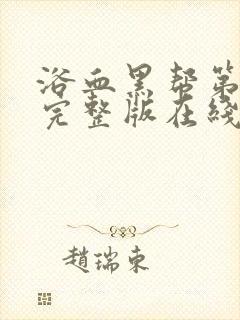 浴血黑帮第
完整版在线
赵瑞东